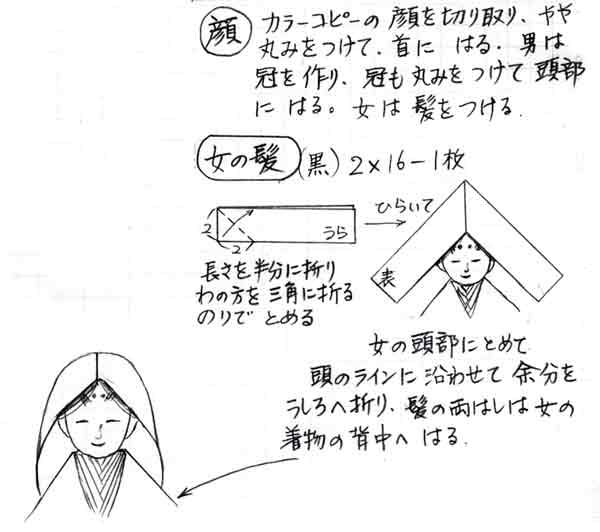 顔
カラーコピーの顔を切り取り、やや
丸みをつけて、首に はる。男は
冠を作り、冠も丸みをつけて頭部
に はる。女は髪をつける.
女の髪 (黒) 2×16-1枚
2
2
うら
ひらいて
表
長さを半分に折り
わの方を三角に折る
のりで とめる
女の頭部にとめて
頭のラインに沿わせて余分を
うしろへ折り、髪の両はしは女の
着物の背中へ はる.